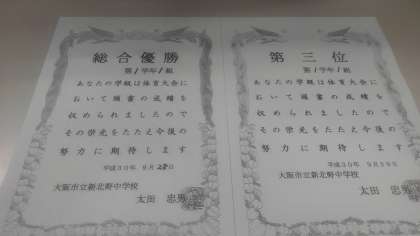 総合優勝
第1学年1組
あなたの学級は体育大会に
おいて頭書の成績を
収められましたので
その栄光をたたえ今後の
努力に期待します
平成30年 9月28日
大阪市立新北野中学校
太田 忠男
第三位
第1学年1組
あなたの学級は体育大会に
おいて頭書の成績を
収められましたので
その栄光をたたえ今後の
努力に期待します
平成30年 9月
大阪市立新北野中学校
太田 忠